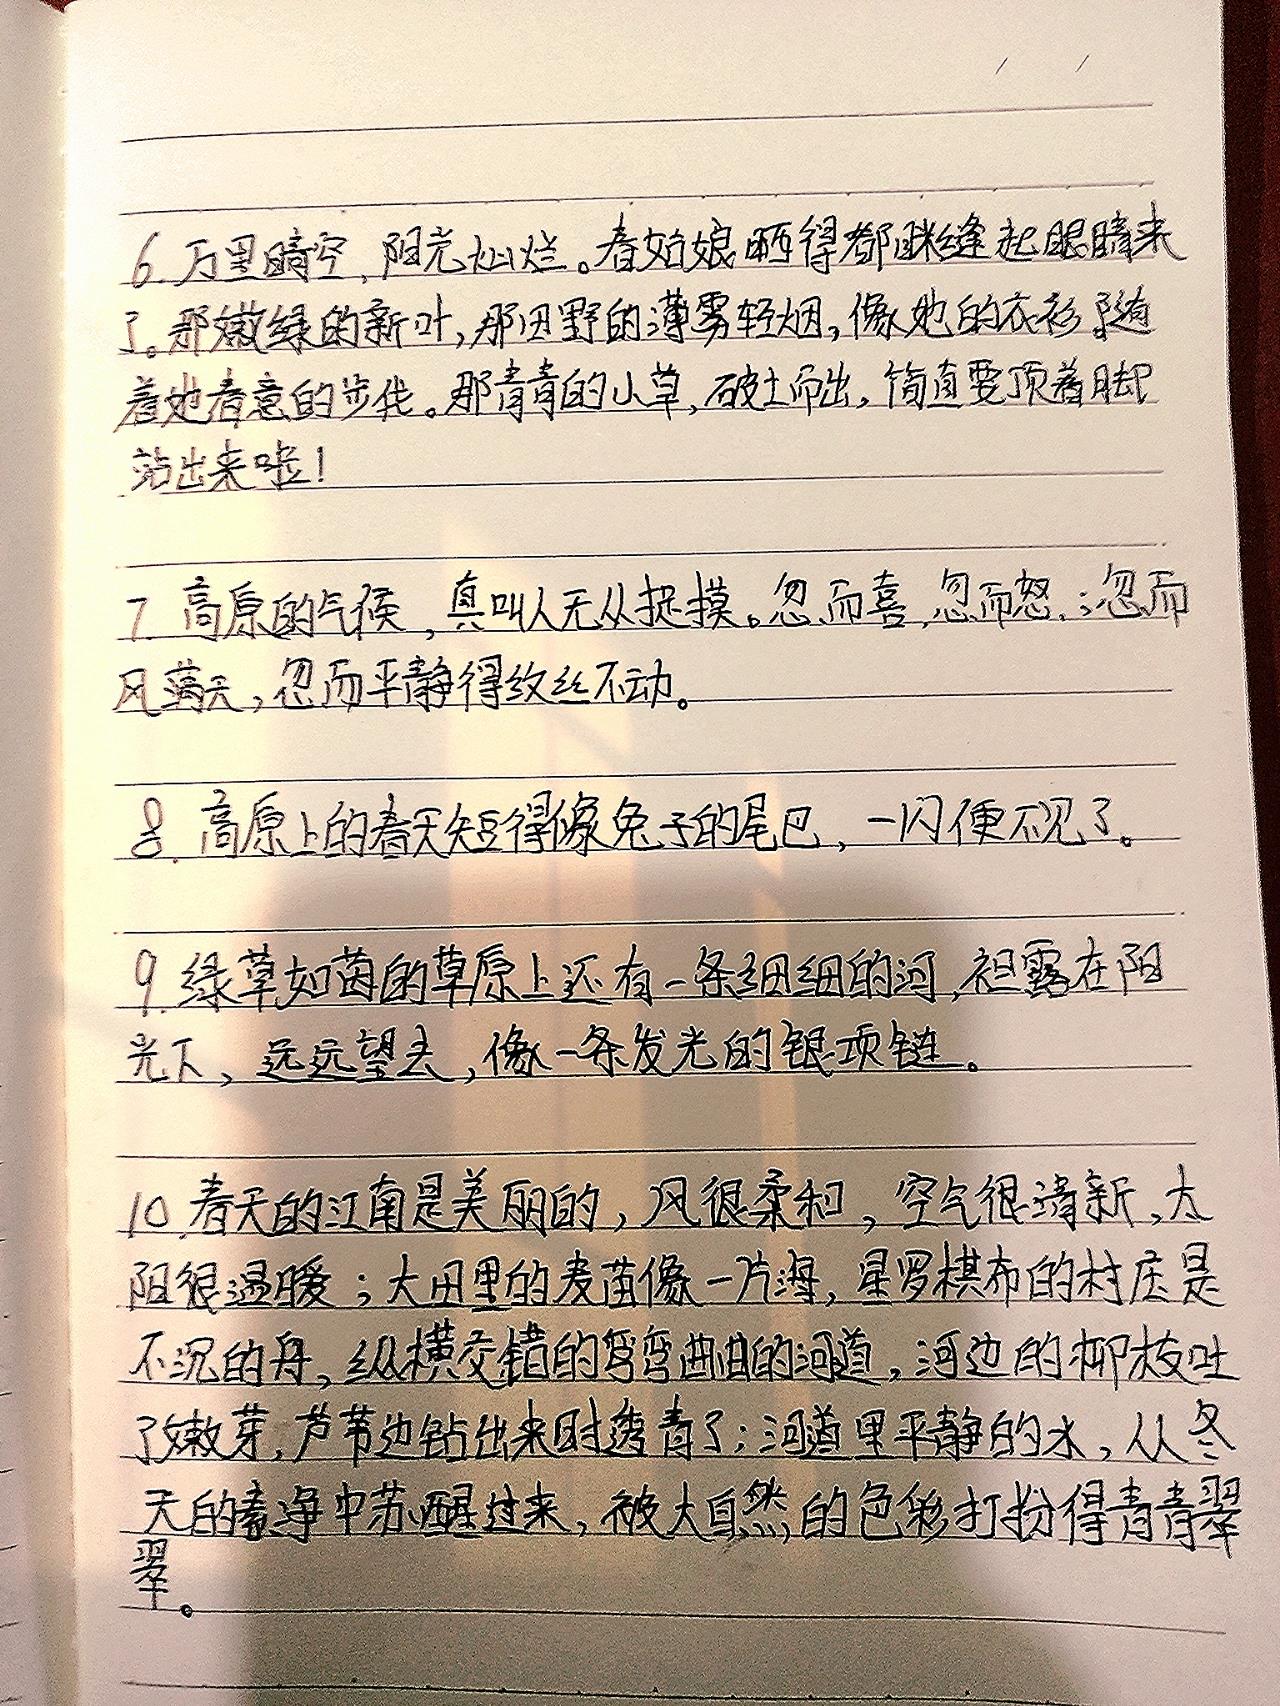 6. 万里晴空,阳光灿烂。春姑娘晒得都眯缝起眼睛来
了。那嫩绿的新叶,那田野的薄雾轻烟,像她的衣衫随
着她春意的步伐。那青青的小草,破土而出,简直要顶着脚
站出来啦!
7. 高原的气候,真叫人无从捉摸。忽而喜,忽而怒,;忽而
风满天,忽而平静得纹丝不动。
8. 高原上的春天短得像兔子的尾巴,一闪便不见了。
9. 绿草如茵的草原上还有一条细细的河,袒露在阳
光下,远远望去,像一条发光的银项链。
10. 春天的江南是美丽的,风很柔和,空气很清新,太
阳很温暖;大田里的麦苗像一片海,星罗棋布的村庄是
不沉的舟,纵横交错的弯弯曲曲的河道,河边的柳枝吐
了嫩芽,芦苇边钻出来时透青了;河道里平静的水,从冬
天的净中苏醒过来,被大自然的色彩打扮得青青翠
翠。